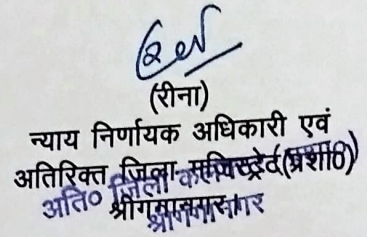 (रीना)
न्याय निर्णायक अधिकारी एवं
अतिरिक्त जिला मजिस्ट्रेट(प्रशा0)
श्रीगंगानगर।
अति० जिला कलक्टर
श्रीगंगानगर